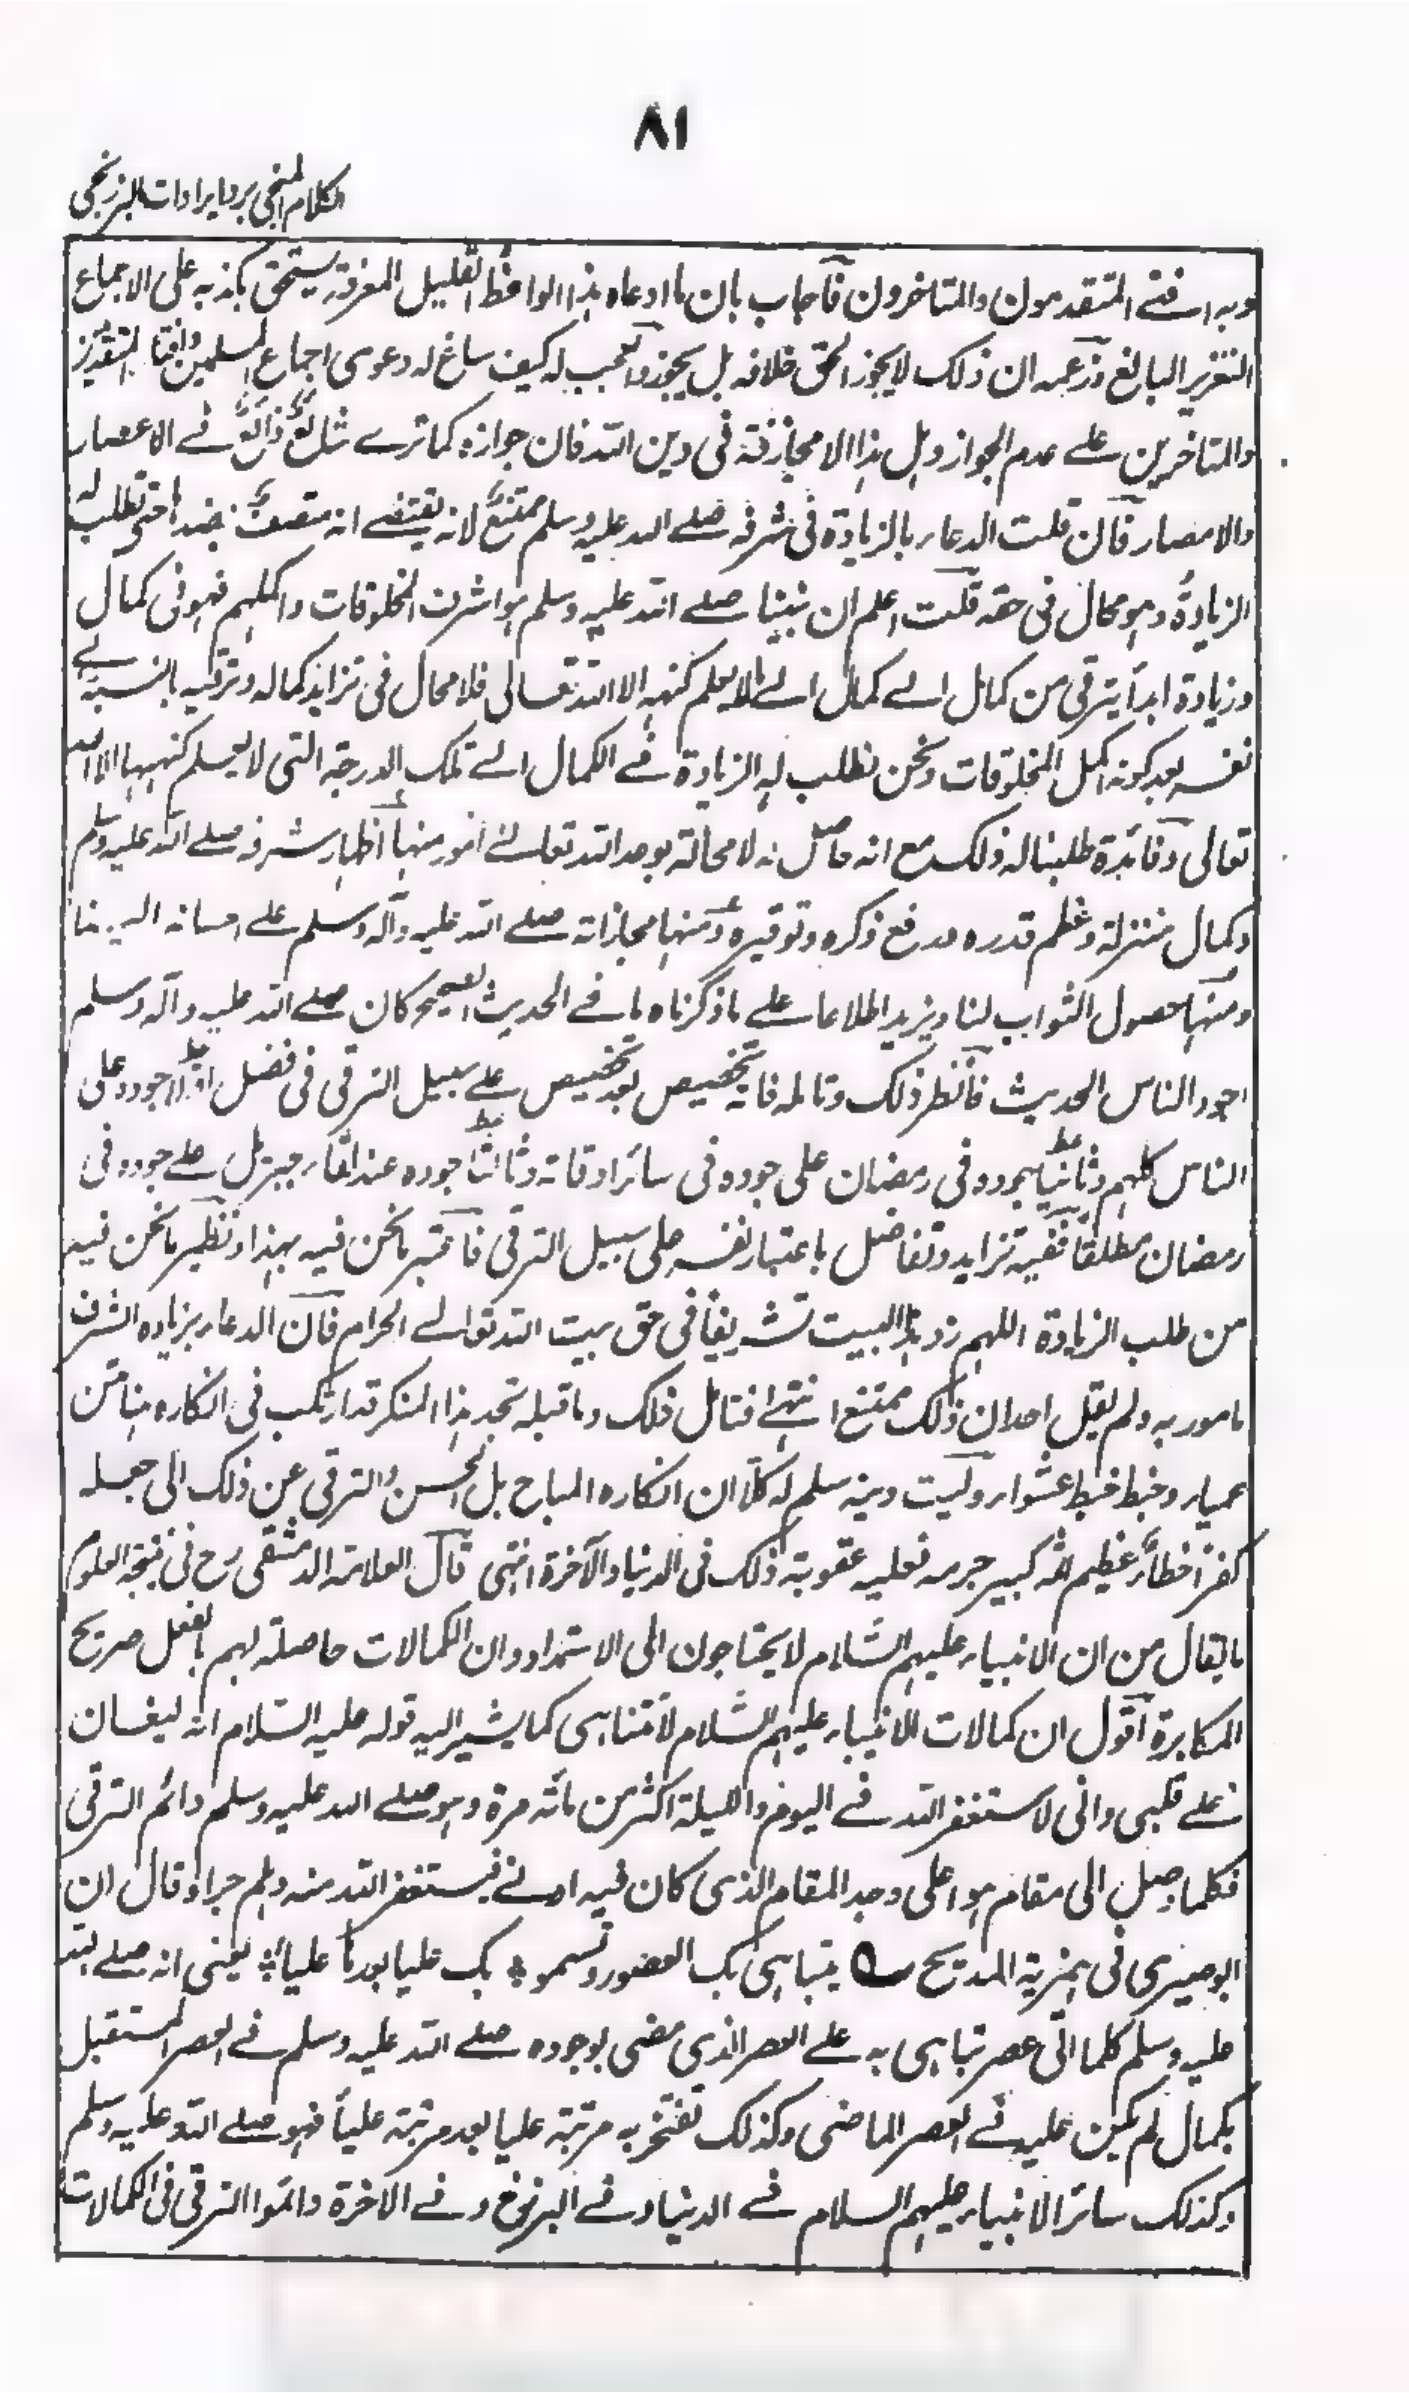 ٨١
الكلام المنجى برد ايرادات البرزنجى
وبه افتى المتقدمون والمتاخرون فاجاب بان ما ادعاه هذا الواعظ القليل المعرفة يستحق بكذبه على الاجماع
التعزير البالغ وزعمه ان ذلك لا يجوز الحق خلافه بل يجوز والعجب له كيف ساغ له دعوى اجماع المسلمين وافتاء المتقدمين
والمتاخرين على عدم الجواز وهل هذا الا مجازفة فى دين الله فان جوازه كما ترى شائع ذائع فى الاعصار
والامصار فان قلت الدعاء بالزيادة فى شرفه صلى الله عليه وسلم ممتنع لانه يقتضى انه متصف بضدها حتى تطلب له
الزيادة وهو محال فى حقه قلت اعلم ان نبينا صلى الله عليه وسلم هو اشرف المخلوقات واكملهم فهو فى كمال
وزيادة ابدا يترقى من كمال الى كمال الى ما لا يعلم كنهه الا الله تعالى فلا محال فى تزايد كماله وترقيه بالنسبة الى
نفسه بعد كونه اكمل المخلوقات ونحن نطلب له الزيادة فى الكمال الى تلك الدرجة التى لا يعلم كنهها الا الله
تعالى وفائدة طلبنا له ذلك مع انه حاصل له لا محالة بوعد الله تعالى امور منها اظهار شرفه صلى الله عليه وسلم
وكمال منزلته وعظم قدره ورفع ذكره وتوقيره ومنها مجازاته صلى الله عليه وآله وسلم على احسانه الينا
ومنها حصول الثواب لنا ويزيد اطلاعا على ما ذكرناه ما فى الحديث الصحيح كان صلى الله عليه وآله وسلم
اجود الناس الحديث فانظر ذلك وتامله فانه تخصيص بعد تخصيص على سبيل الترقى فى فضل اولا جوده على
الناس كلهم وثانيا بجوده فى رمضان على جوده فى سائر اوقاته وثالثا جوده عند لقاء جبريل على جوده فى
رمضان مطلقا ففيه تزايد وتفاضل باعتبار نفسه على سبيل الترقى فاعتبر ما نحن فيه بهذا ونظير ما نحن فيه
من طلب الزيادة اللهم زد هذا البيت تشريفا فى حق بيت الله تعالى الحرام فان الدعاء بزيادة الشرف
مامور به ولم يقل احد ان ذلك ممتنع انتهى فتامل ذلك وما قبله تجد هذا المنكر قد ارتكب فى انكاره هنا متن
عمياء وخبط خبط عشواء وليت دينه سلم له كلا ان انكاره المباح بل الحسن والترقى عن ذلك الى جعله
كفرا خطأ عظيم اثمه كبير جرمه فعليه عقوبة ذلك فى الدنيا والآخرة انتهى قال العلامة الدمشقى رح فى نتيجة العلوم
ما يقال من ان الانبياء عليهم السلام لا يحتاجون الى الاستمداد وان الكمالات حاصلة لهم بالفعل صريح
المكابرة اقول ان كمالات الانبياء عليهم السلام لا تتناهى كما يشير اليه قوله عليه السلام انه ليغان
على قلبى وانى لاستغفر الله فى اليوم والليلة اكثر من مائة مرة وهو صلى الله عليه وسلم دائم الترقى
فكلما وصل الى مقام هو اعلى وجد المقام الذى كان فيه ادنى فيستغفر الله منه وهلم جرا وقال ان
البوصيرى فى همزية المديح تتباهى بك العصور وتسمو بك عليا بعدها علياء يعنى انه صلى الله
عليه وسلم كلما اتى عصر تباهى به على العصر الذى مضى بوجوده صلى الله عليه وسلم فى العصر المستقبل
بكمال لم يكن عليه فى العصر الماضى وكذلك تفتخر به مرتبة عليا بعد مرتبة عليا فهو صلى الله عليه وسلم
وكذلك سائر الانبياء عليهم السلام فى الدنيا وفى البرزخ وفى الاخرة دائموا الترقى فى الكمالات